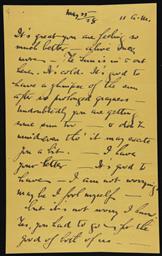 May 23/28 11 A.M.
It's great you are feeling so
much better — alive once
more — The Sun is out
here. It's cold. It's good to
have a glimpse of the sun
after so prolonged grayness —
Undoubtedly you are getting
some sun too
it may excite
you a bit. — I have
your letter — It's good to
have — I am not worrying
maybe I fool myself —
but it's not worry I know
Yes, you had to go — for the
good of both of us —